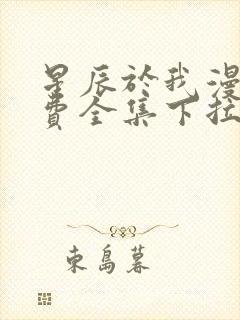 星辰於我漫
費全集下拉
東島暮